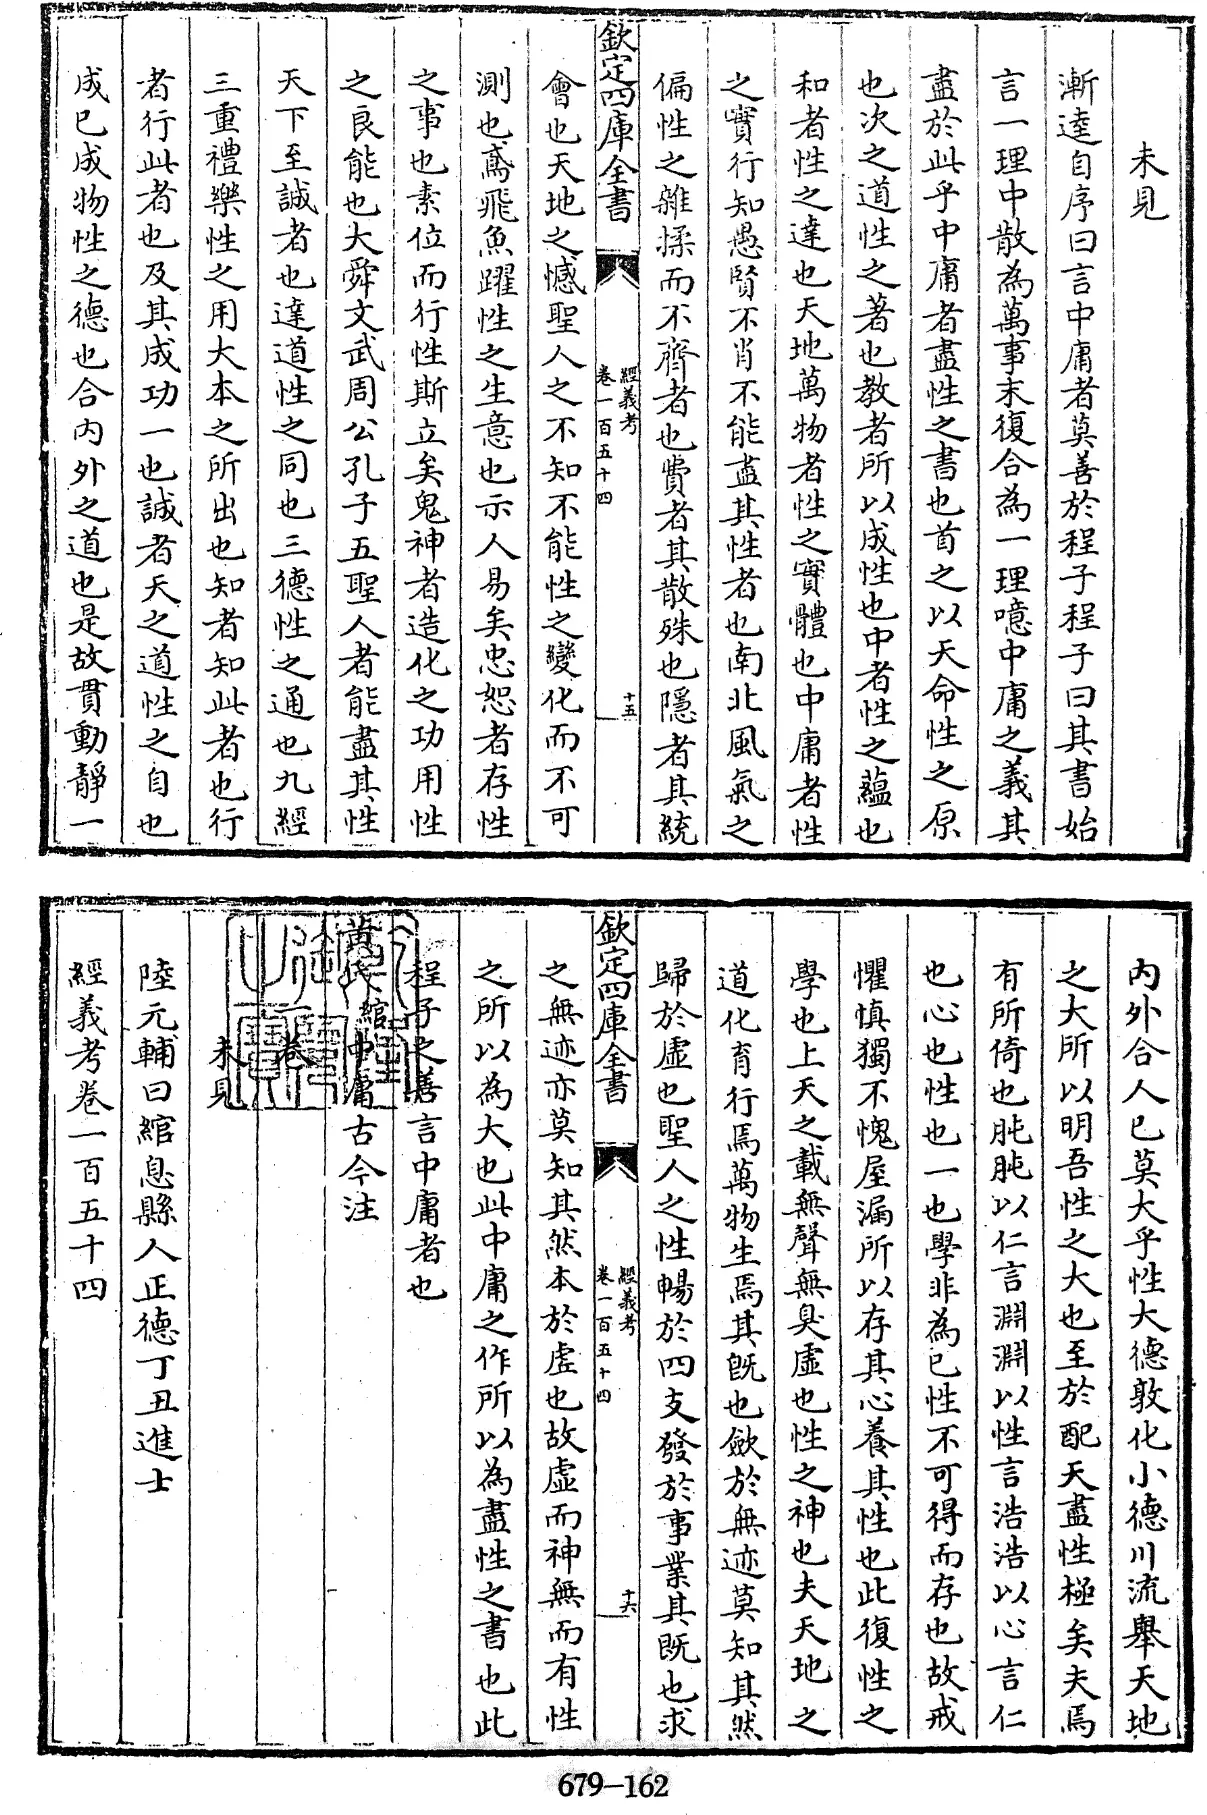 未見
漸逵自序曰言中庸者莫善於程子程子曰其書始
言一理中散為萬事末復合為一理噫中庸之義其
盡於此乎中庸者盡性之書也首之以天命性之原
也次之道性之著也教者所以成性也中者性之蘊也
和者性之達也天地萬物者性之實體也中庸者性
之實行知愚賢不肖不能盡其性者也南北風氣之
偏性之雜揉而不齊者也費者其散殊也隱者其統
欽定四庫全書
經義考
卷一百五十四
十五
會也天地之憾聖人之不知不能性之變化而不可
測也鳶飛魚躍性之生意也示人易矣忠恕者存性
之事也素位而行性斯立矣鬼神者造化之功用性
之良能也大舜文武周公孔子五聖人者能盡其性
天下至誠者也達道性之同也三德性之通也九經
三重禮樂性之用大本之所出也知者知此者也行
者行此者也及其成功一也誠者天之道性之自也
成已成物性之德也合內外之道也是故貫動靜一
內外合人已莫大乎性大德敦化小德川流舉天地
之大所以明吾性之大也至於配天盡性極矣夫焉
有所倚也肫肫以仁言淵淵以性言浩浩以心言仁
也心也性也一也學非為已性不可得而存也故戒
懼慎獨不愧屋漏所以存其心養其性也此復性之
學也上天之載無聲無臭虛也性之神也夫天地之
道化育行焉萬物生焉其既也歛於無迹莫知其然
歸於虛也聖人之性暢於四支發於事業其既也求
欽定四庫全書
經義考
卷一百五十四
十六
之無迹亦莫知其然本於虛也故虛而神無而有性
之所以為大也此中庸之作所以為盡性之書也此
程子之善言中庸者也
黃氏綰中庸古今注
一卷
未見
陸元輔曰綰息縣人正德丁丑進士
經義考卷一百五十四
679-162